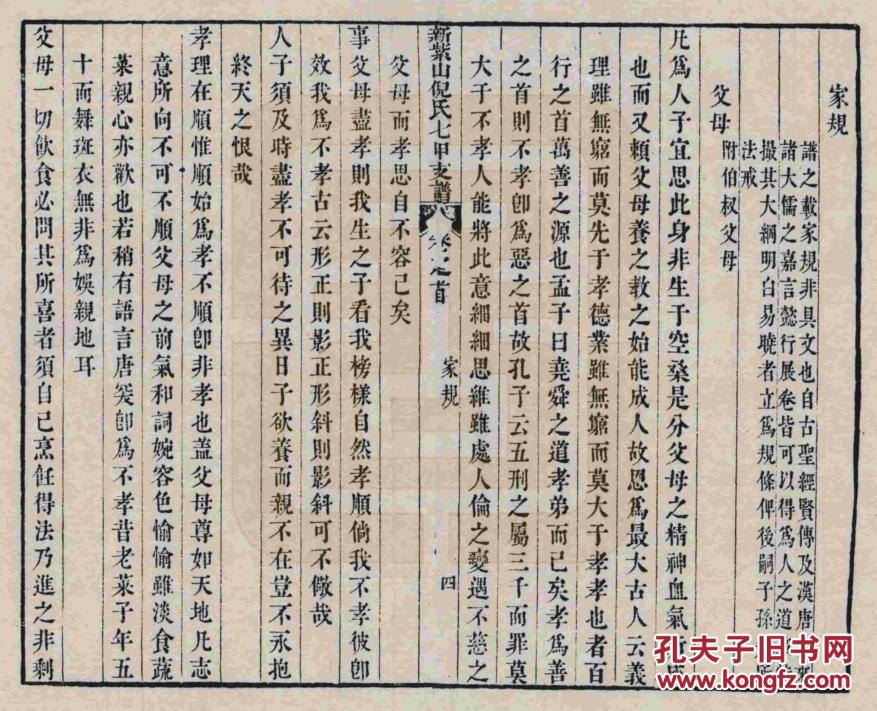 家規
譜之載家規非具文也自古聖經賢傳及漢唐
諸大儒之嘉言懿行展卷皆可以得為人之道
撮其大綱明白易曉者立為規條俾後嗣子孫
法戒
父母 附伯叔父母
凡為人子宜思此身非生于空桑是分父母之精神血氣
也而又賴父母養之教之始能成人故恩為最大古人云義
理雖無窮而莫先于孝德業雖無窮而莫大于孝孝也者百
行之首萬善之源也孟子曰堯舜之道孝弟而已矣孝為善
之首則不孝卽為惡之首故孔子云五刑之屬三千而罪莫
大于不孝人能將此意細細思維雖處人倫之變遇不慈之
新紫山倪氏七甲支譜 卷之首 家規 四
父母而孝思自不容已矣
事父母盡孝則我生之子看我榜樣自然孝順倘我不孝彼卽
效我為不孝古云形正則影正形斜則影斜可不儆哉
人子須及時盡孝不可待之異日子欲養而親不在豈不永抱
終天之恨哉
孝理在順惟順始為孝不順卽非孝也盖父母尊如天地凡志
意所向不可不順父母之前氣和詞婉容色愉愉雖淡食蔬
菜親心亦歡也若稍有語言唐突卽為不孝昔老萊子年五
十而舞斑衣無非為娛親地耳
父母一切飲食必問其所喜者須自己烹飪得法乃進之非剩
孔夫子旧书网
www.kongfz.com